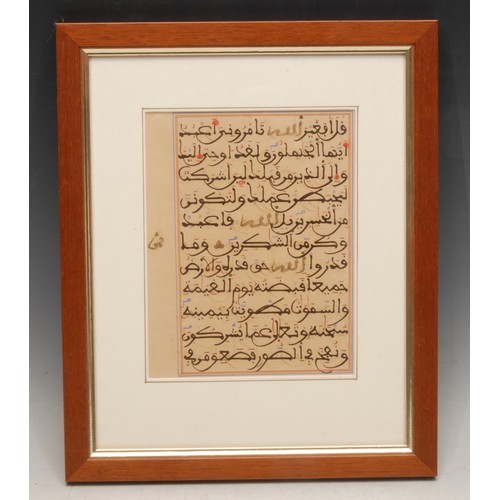 قل أفغير الله تامروني أعبد
أيها الجهلون ولقد اوحي اليك
والى الذين من قبلك لين اشركت
ليحبطن عملك ولتكونن
من الخسرين بل الله فاعبد
وكن من الشكرين وما
قدروا الله حق قدره والارض
جميعا قبضته يوم القيمة
والسموت مطويت بيمينه
سبحنه وتعلى عما يشركون
ونفخ في الصور فصعق من في